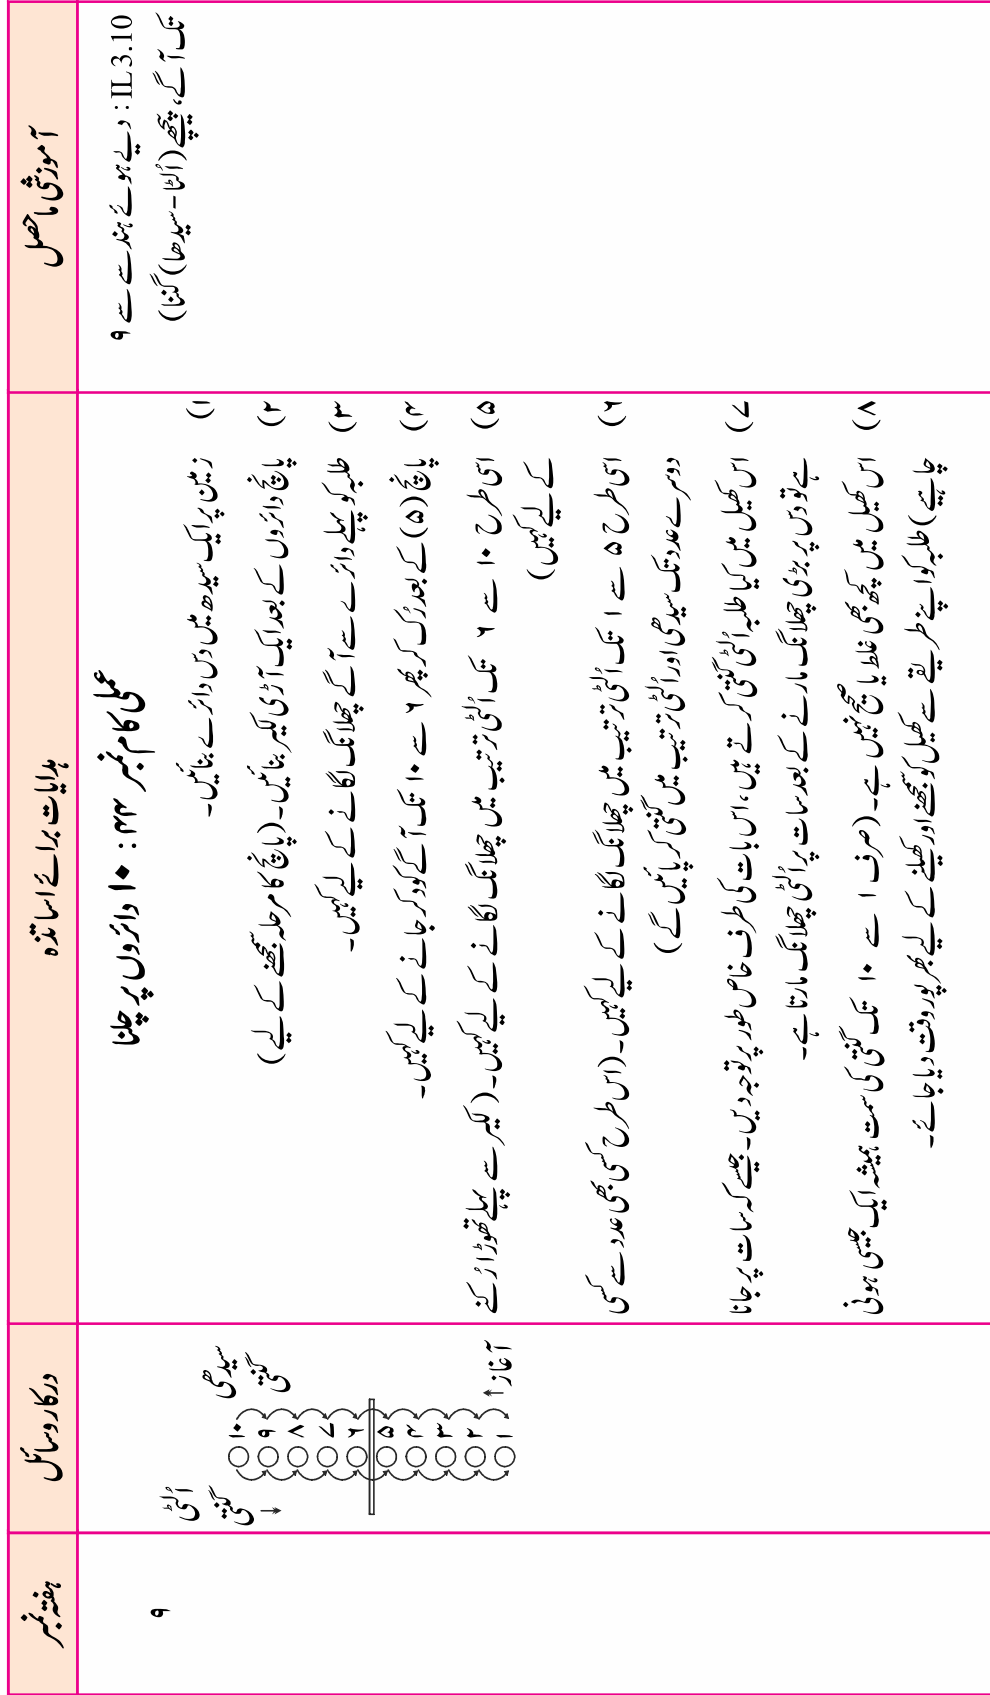 آموزشی ماحصل
ہدایات برائے اساتذہ
درکار وسائل
ہفتہ نمبر
IL3.10 : دیے ہوئے ہندسے سے ۹
تک آگے، پیچھے (اُلٹا - سیدھا) گننا)
عملی کام نمبر ۴۴ : ۱۰ دائروں پر چلنا
۱) زمین پر ایک سیدھ میں دس دائرے بنائیں۔
۲) پانچ دائروں کے بعد ایک آڑی لکیر بنائیں۔ (پانچ کا مرحلہ سمجھنے کے لیے)
۳) طلبہ کو پہلے دائرے سے آگے چھلانگ لگانے کے لیے کہیں۔
۴) پانچ (۵) کے بعد رُک کر پھر ۶ سے ۱۰ تک آگے کود کر جانے کے لیے کہیں۔
۵) اسی طرح ۱۰ سے ۶ تک اُلٹی ترتیب میں چھلانگ لگانے کے لیے کہیں۔ (لکیر سے پہلے تھوڑا رُکنے
کے لیے کہیں)
۶) اسی طرح ۵ سے ۱ تک اُلٹی ترتیب میں چھلانگ لگانے کے لیے کہیں۔ (اس طرح کسی بھی عدد سے کسی
دوسرے عدد تک سیدھی اور اُلٹی ترتیب میں گنتی کر پائیں گے)
۷) اس کھیل میں کیا طلبہ اُلٹی گنتی کرتے ہیں، اس بات کی طرف خاص طور پر توجہ دیں۔ جیسے کہ سات پر جانا
ہے تو دس پر بڑی چھلانگ مارنے کے بعد سات پر اُلٹی چھلانگ مارتا ہے۔
۸) اس کھیل میں کچھ بھی غلط یا صحیح نہیں ہے۔ (صرف ۱ سے ۱۰ تک گنتی کی سمت ہمیشہ ایک جیسی ہونی
چاہیے) طلبہ کو اپنے طریقے سے کھیل کو سمجھنے اور کھیلنے کے لیے بھرپور وقت دیا جائے۔
سیدھی
گنتی
آغاز ↑
۱۰
۹
۸
۷
۶
۵
۴
۳
۲
۱
اُلٹی
گنتی
↓
۹